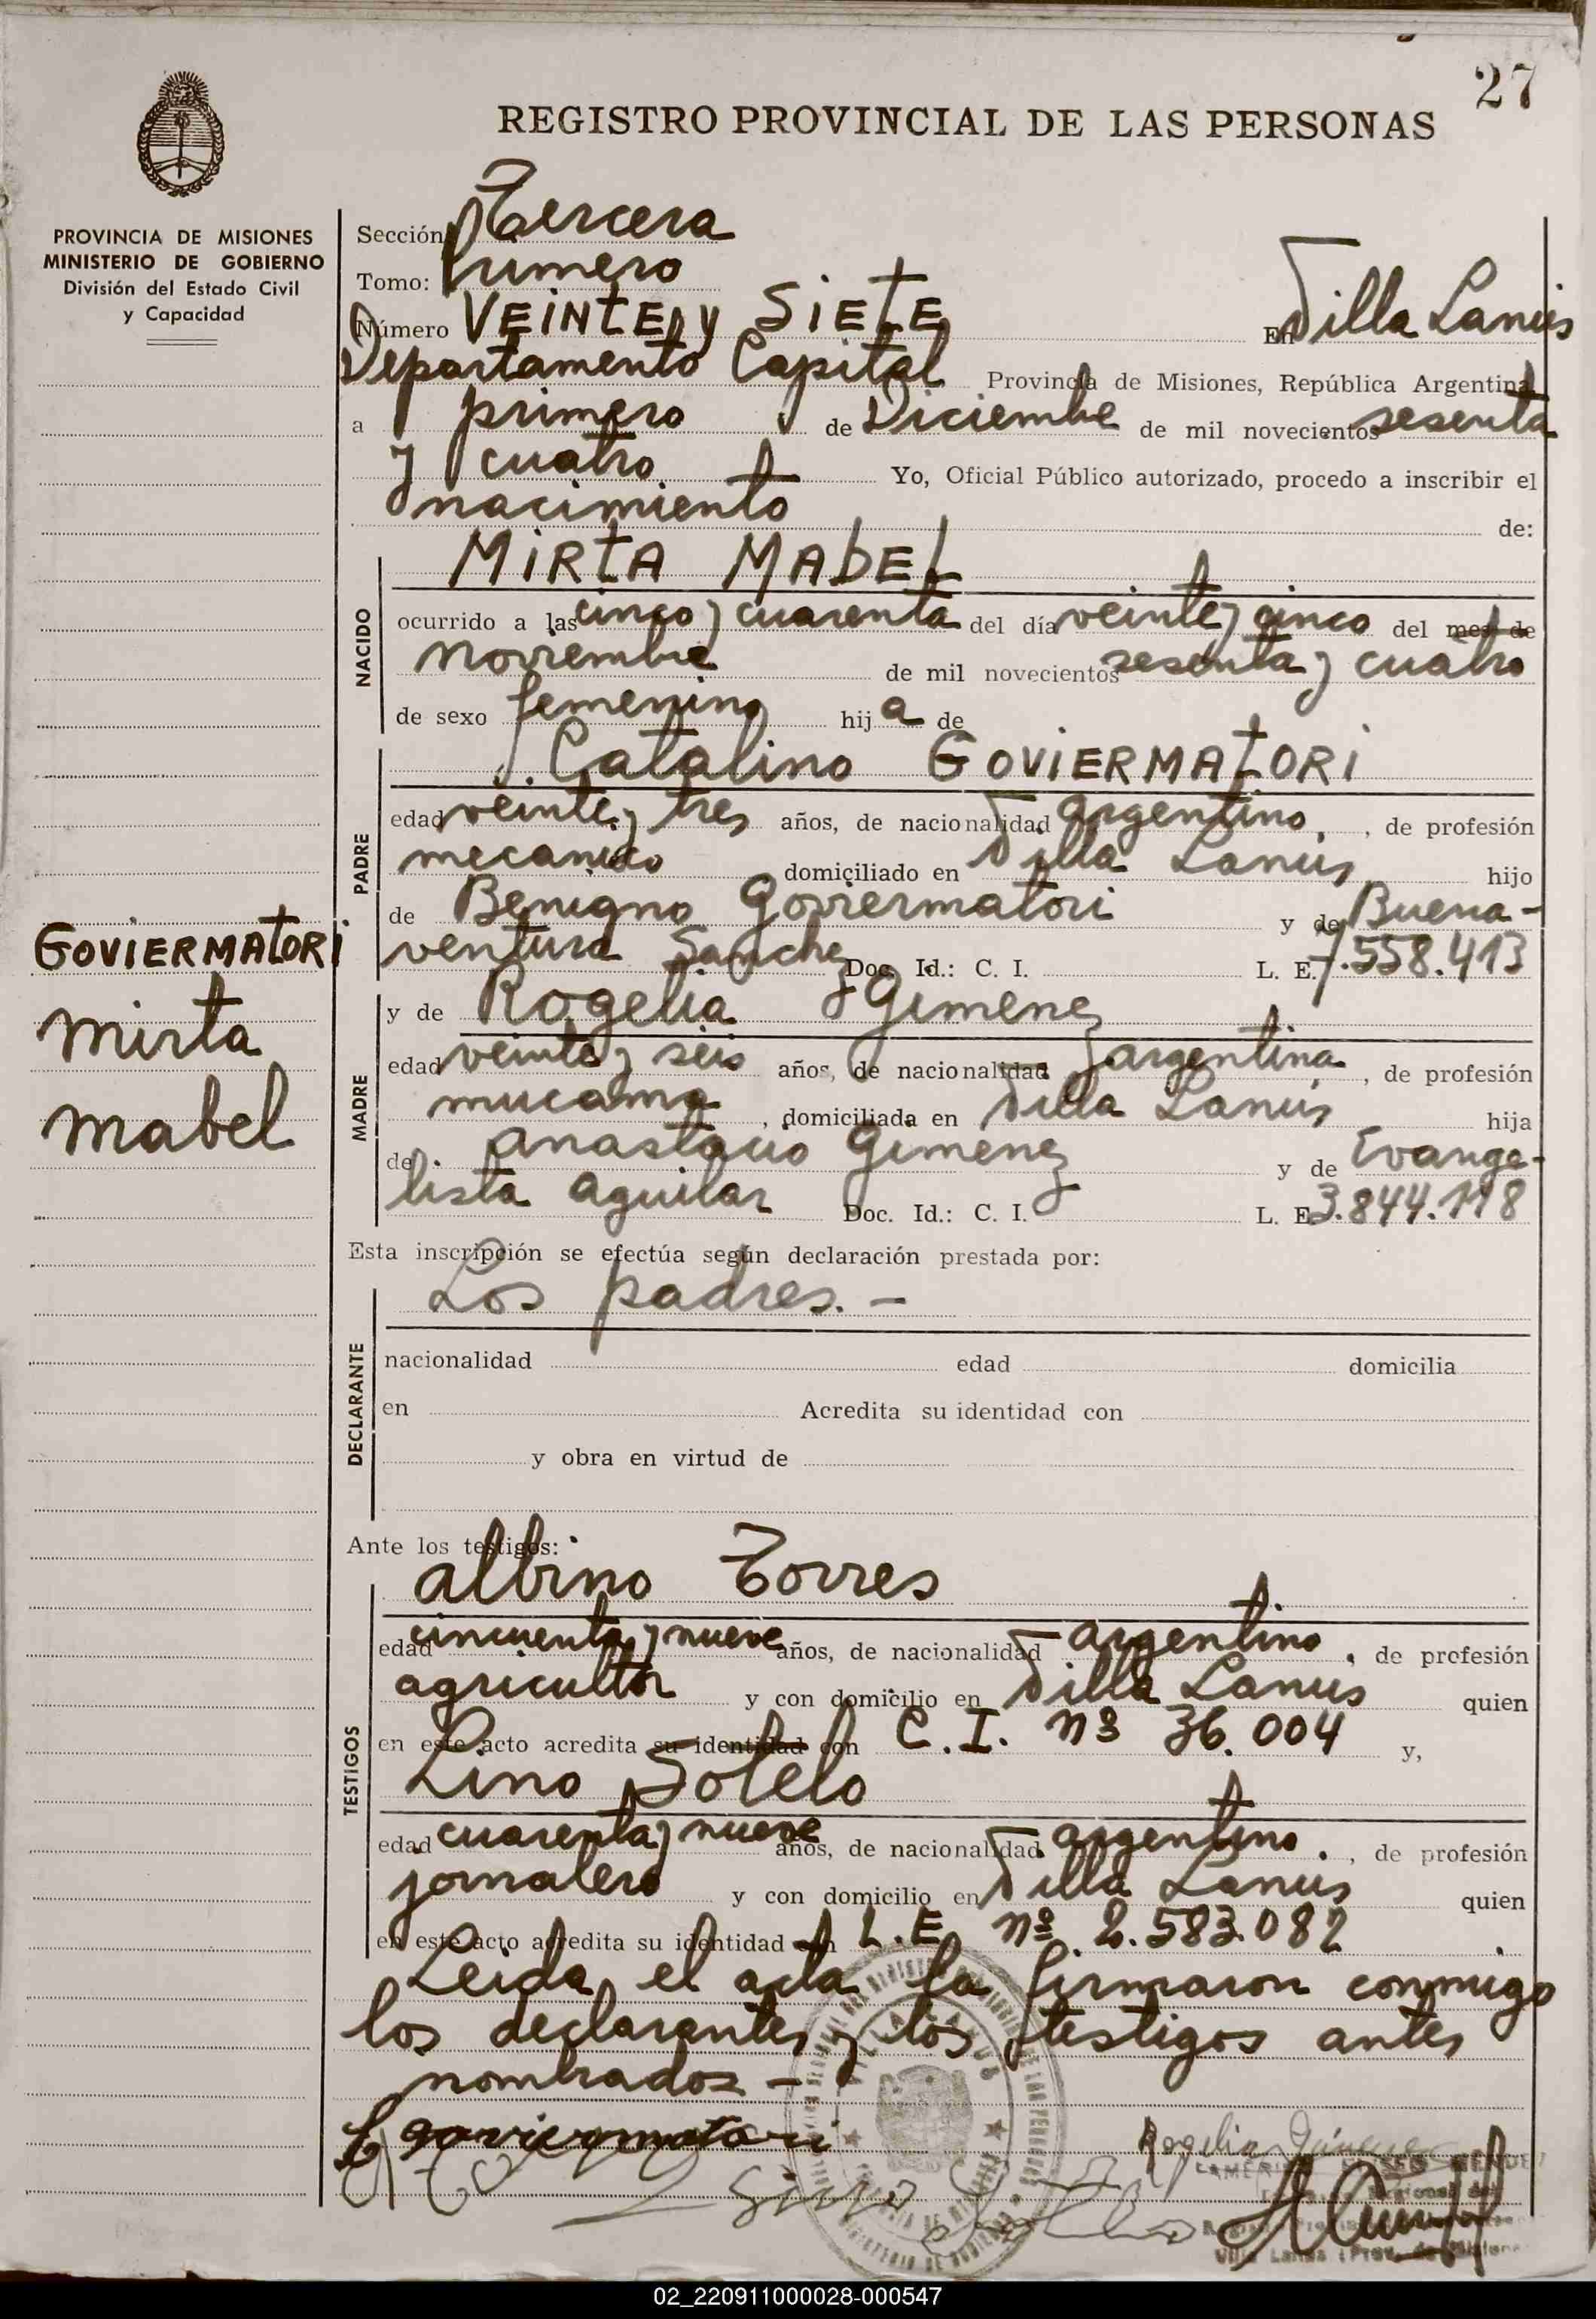 27
REGISTRO PROVINCIAL DE LAS PERSONAS
PROVINCIA DE MISIONES
MINISTERIO DE GOBIERNO
División del Estado Civil
y Capacidad
Sección Tercera
Tomo: Primero
Número VEINTE y SIETE En Villa Lanús
Departamento Capital Provincia de Misiones, República Argentina
a primero de Diciembre de mil novecientos sesenta
y cuatro Yo, Oficial Público autorizado, procedo a inscribir el
nacimiento de:
MIRTA MABEL
NACIDO
ocurrido a las cinco y cuarenta del día veinte y cinco del mes de
Noviembre de mil novecientos sesenta y cuatro
de sexo femenino hija de
Catalino GOVIERMATORI
PADRE
edad veinte y tres años, de nacionalidad argentino, de profesión
mecanico domiciliado en Villa Lanús hijo
de Benigno Goviermatori y de Buena-
ventura Sanchez Doc. Id.: C. I. L. E. 7.558.413
GOVIERMATORI
Mirta
Mabel
y de Rogelia Gimenez
MADRE
edad veinte y seis años, de nacionalidad argentina, de profesión
mucama, domiciliada en Villa Lanús hija
de Anastacio Gimenez y de Evange-
lista Aguilar Doc. Id.: C. I. L. E. 3.844.118
Esta inscripción se efectúa según declaración prestada por:
Los padres. -
DECLARANTE
nacionalidad edad domicilia
en Acredita su identidad con
y obra en virtud de
Ante los testigos:
Albino Torres
TESTIGOS
edad cincuenta y nueve años, de nacionalidad argentino, de profesión
agricultor y con domicilio en Villa Lanús quien
en este acto acredita su identidad con C. I. Nº 36.004 y,
Lino Sotelo
edad cuarenta y nueve años, de nacionalidad argentino, de profesión
jornalero y con domicilio en Villa Lanús quien
en este acto acredita su identidad con L. E. Nº 2.583.082
Leida el acta la firmaron conmigo
los declarantes y los testigos antes
nombrados -
C goviermatori
Rogelia Gimenez
02_220911000028-000547